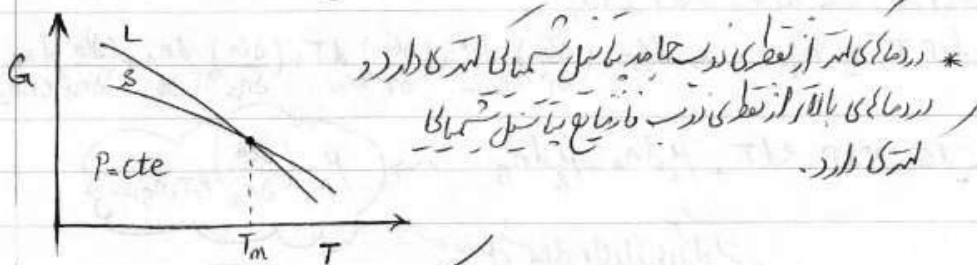 * در دماهای کمتر از نقطه‌ی ذوب جامد پتانسیل شیمیایی کمتری دارد و
در دماهای بالاتر از نقطه‌ی ذوب فاز مایع پتانسیل شیمیایی
کمتری دارد.
G
L
S
P=cte
Tm
T